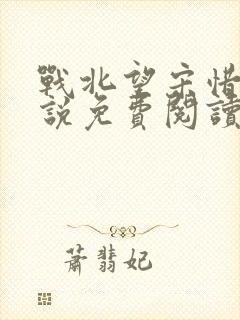 戰北望宋惜
說免費閱讀
蕭翡妃